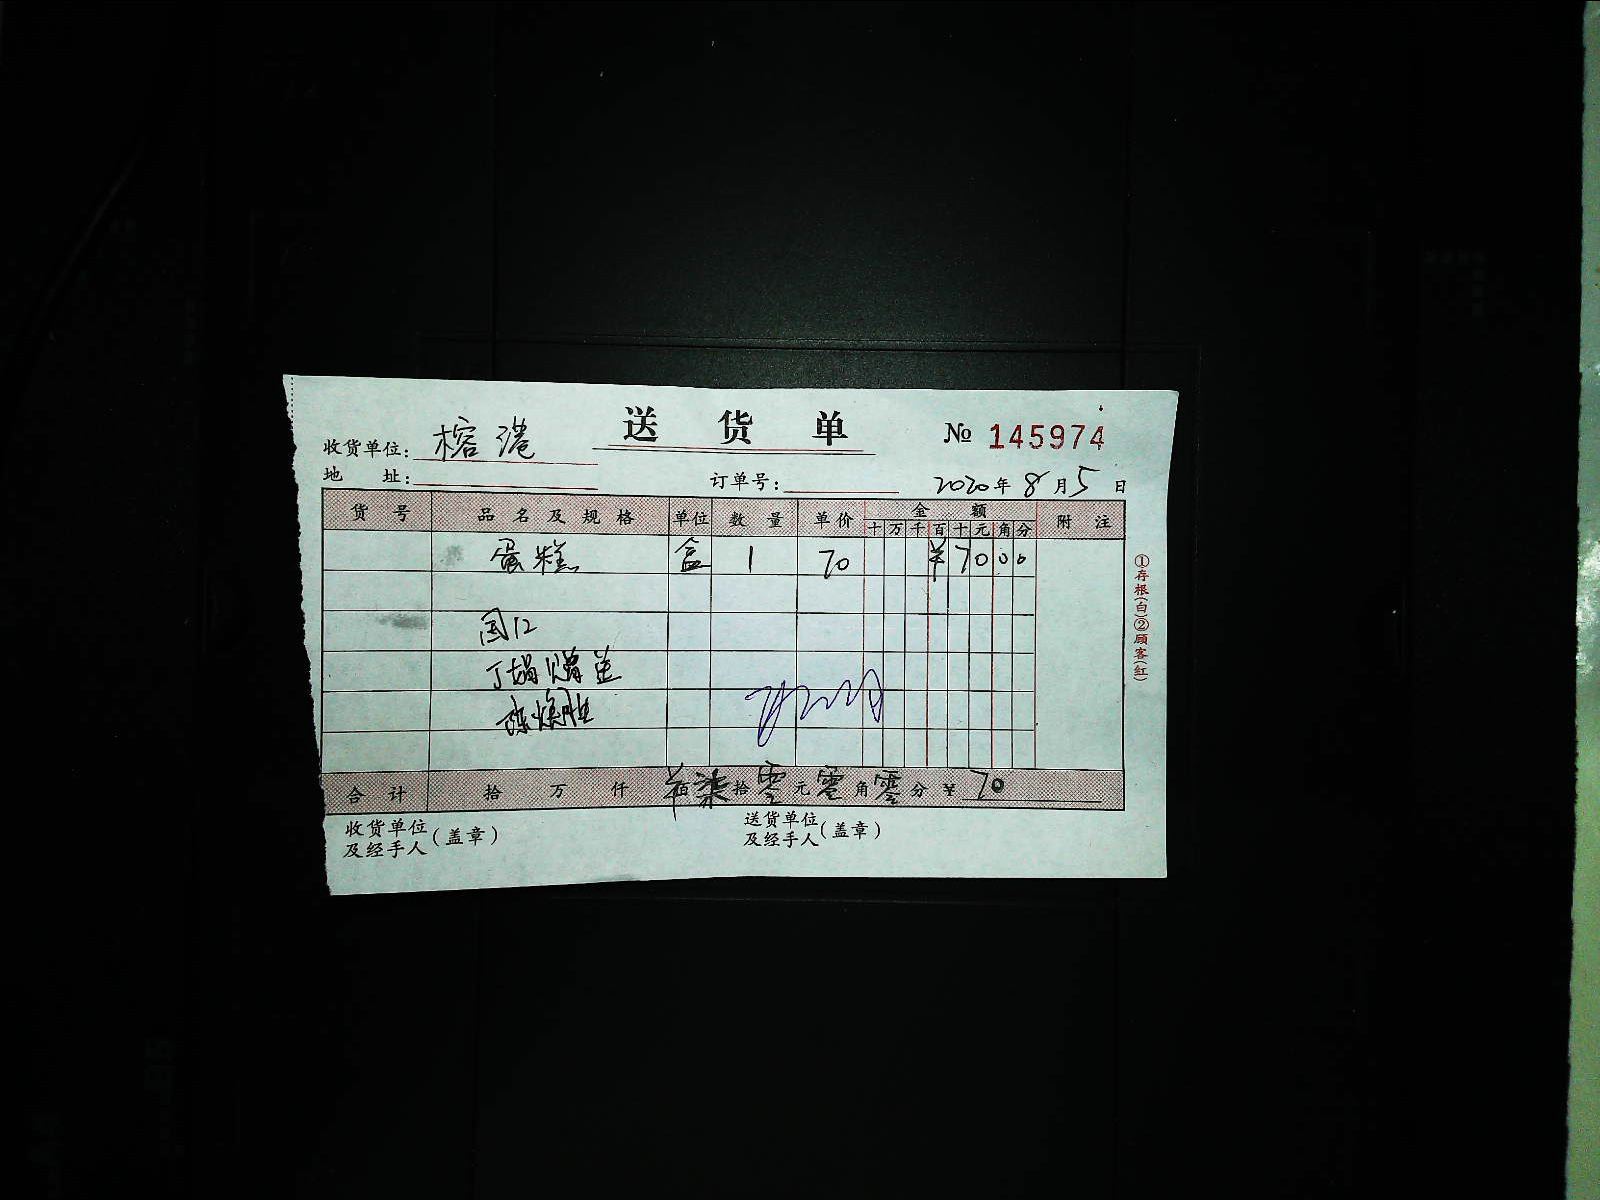 送货单
№ 145974
收货单位: 榕港
地 址: 订单号: 2020年8月5日
货号 品名及规格 单位 数量 单价 金额 附注
十 万 千 百 十 元 角 分
蛋糕 盒 1 70 ¥7000
国12
陈焕胜
合计 拾 万 仟 佰柒拾零元零角零分¥ 70
收货单位及经手人(盖章) 送货单位及经手人(盖章)
①存根(白)②顾客(红)